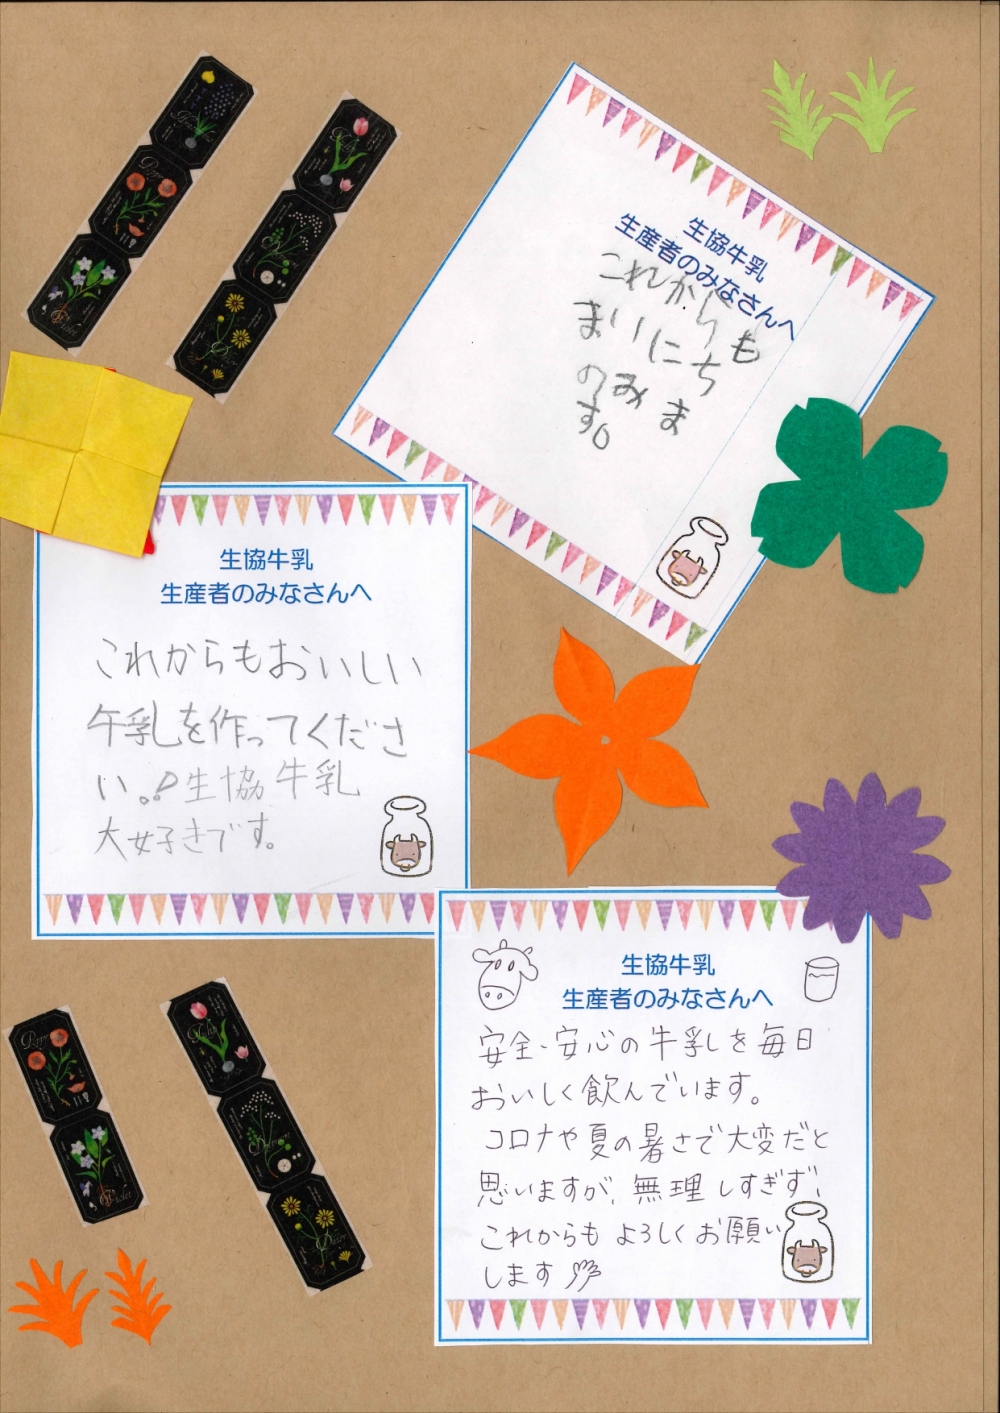 生協牛乳
生産者のみなさんへ
これからも
まいにち
のみま
す。
生協牛乳
生産者のみなさんへ
これからもおいしい
午乳を作ってくださ
い。!生協牛乳
大好きです。
生協牛乳
生産者のみなさんへ
安全、安心の牛乳を毎日
おいしく飲んでいます。
コロナや夏の暑さで大変だと
思いますが、無理しすぎず、
これからもよろしくお願い
します